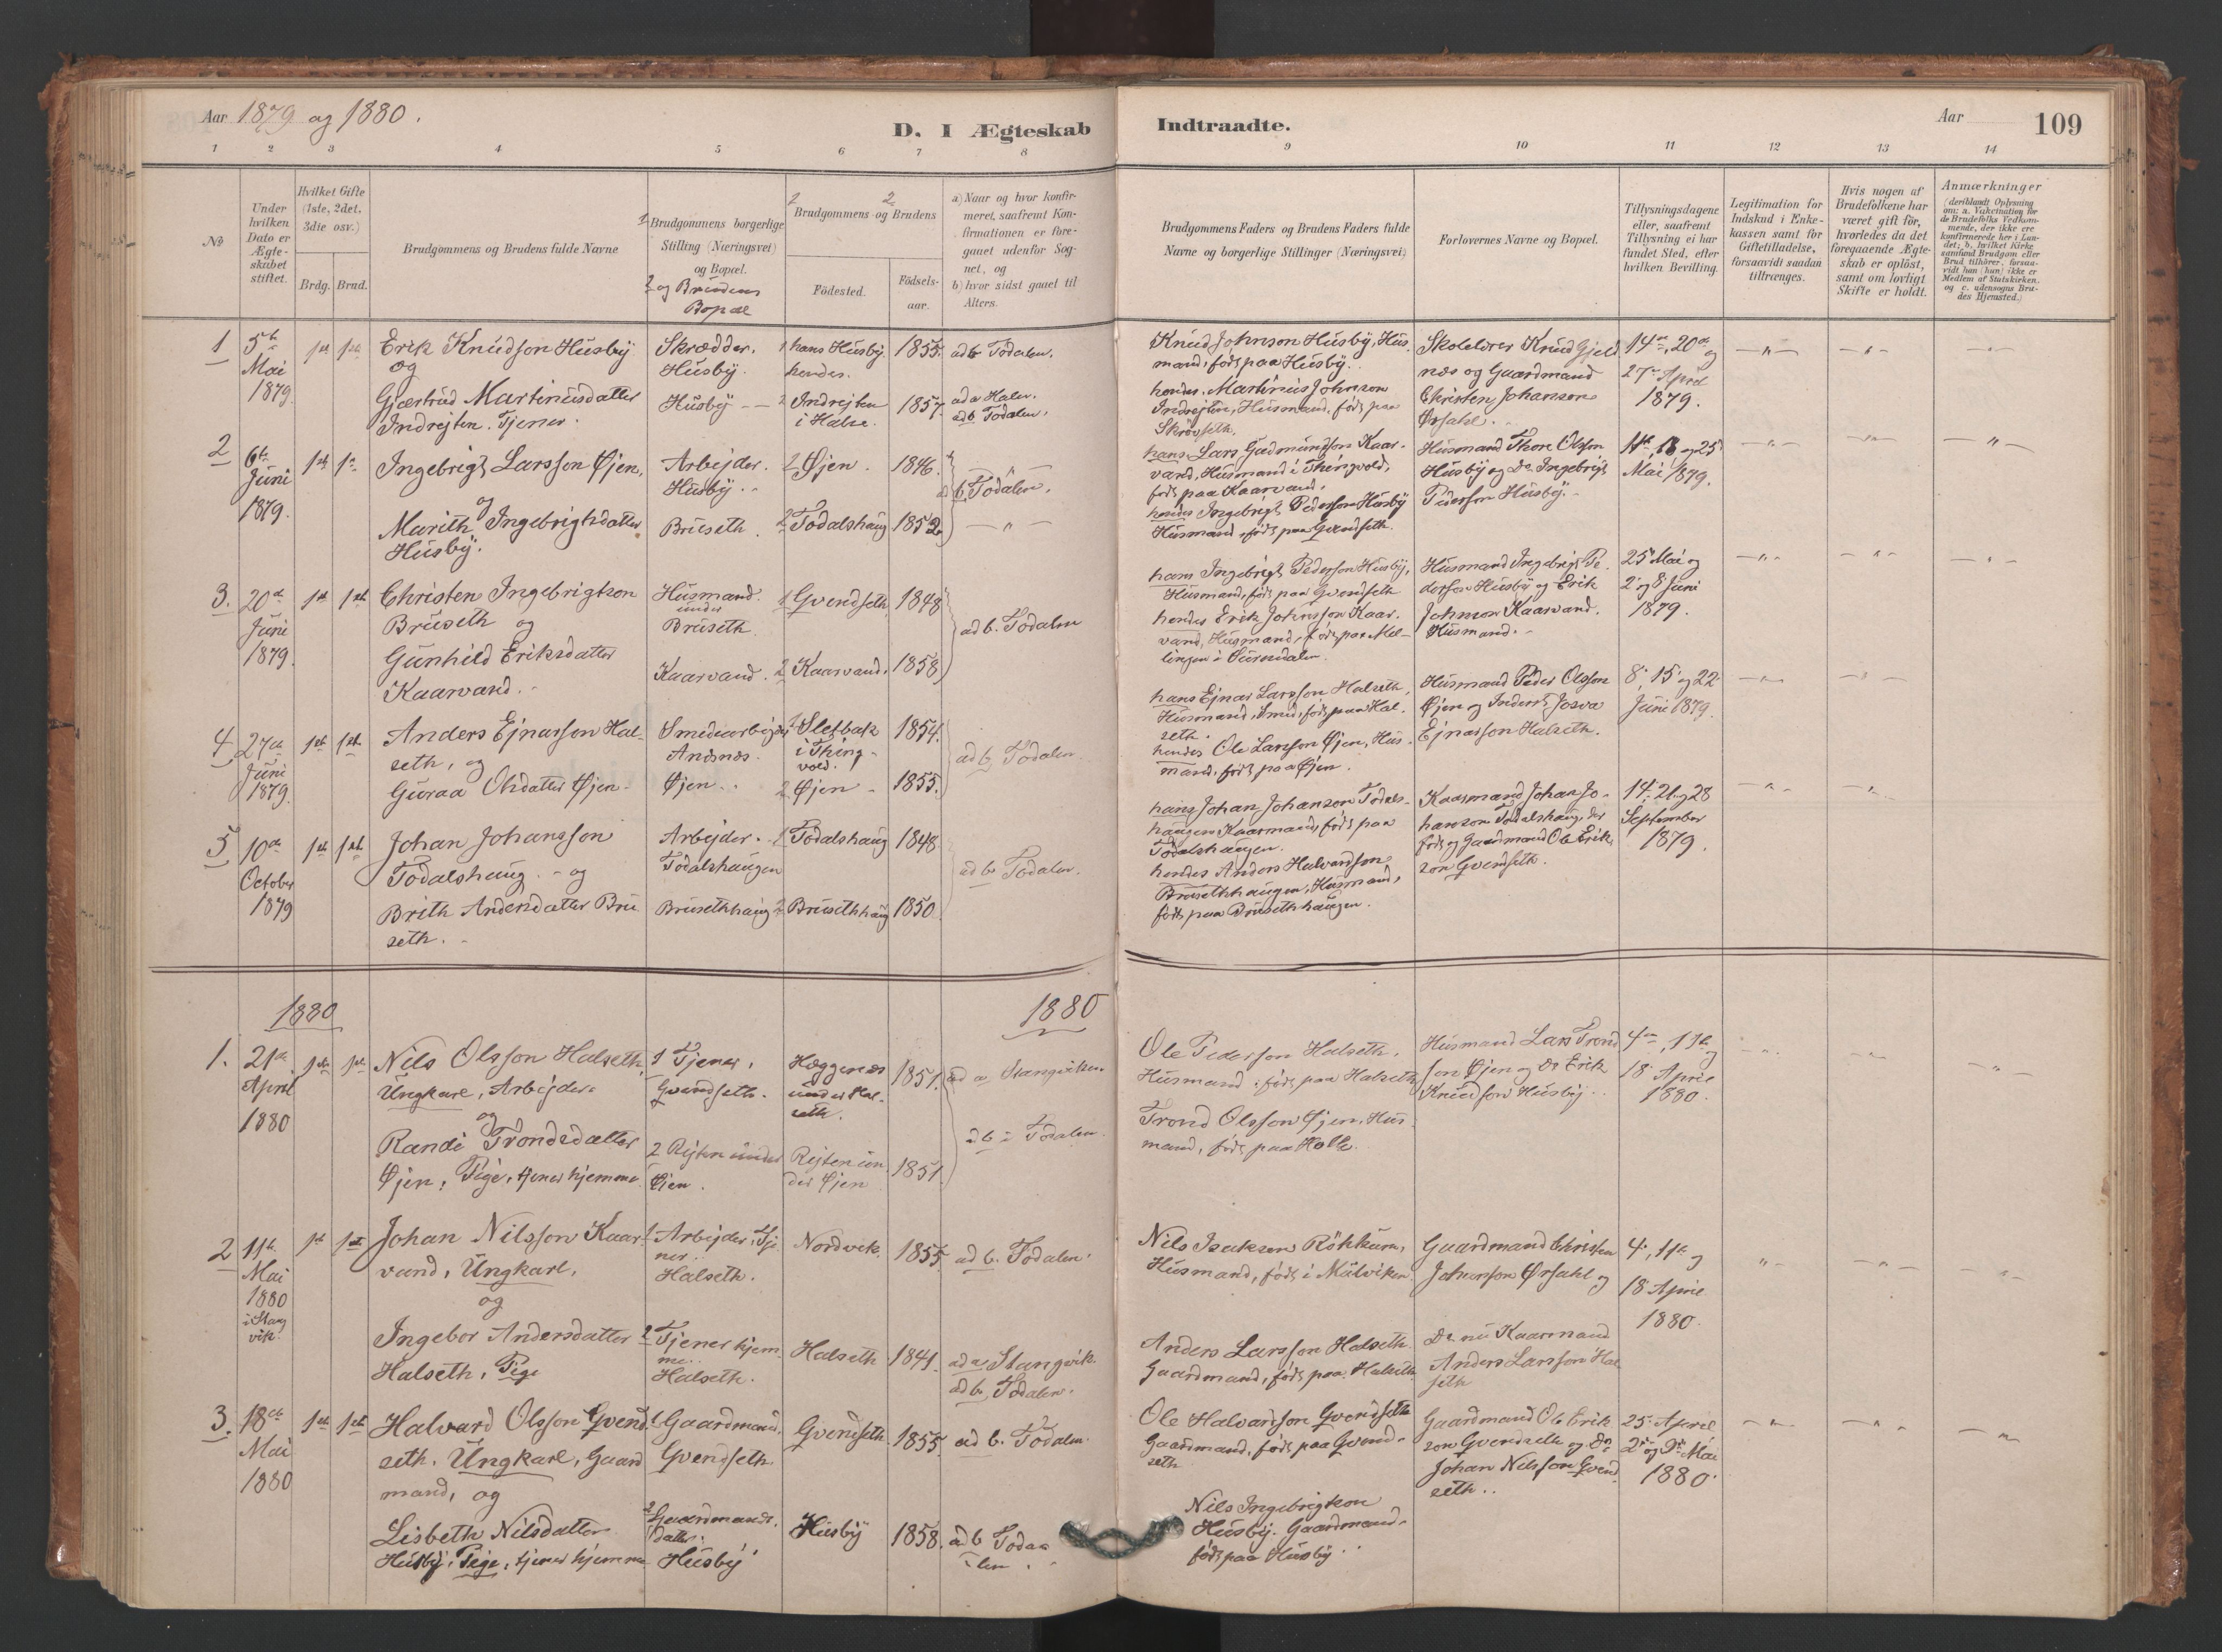 Aar 1879 og 1880.
D. I Ægteskab Indtraadte.
Aar
109
1 2 3 4 5 6 7 8 9 10 11 12 13 14
No
Under hvilken Dato er Ægteskabet stiftet.
Hvilket Gifte (1ste, 2det, 3die osv.)
Brdg. Brud.
Brudgommens og Brudens fulde Navne
1 Brudgommens borgerlige Stilling (Næringsvei) og Bopæl.
2 og Brudens Bopæl
1 2
Brudgommens og Brudens
Födested.
Födselsaar.
a) Naar og hvor konfirmeret, saafremt Konfirmationen er foregaaet udenfor Sognet, og
b) hvor sidst gaaet til Alters.
Brudgommens Faders og Brudens Faders fulde Navne og borgerlige Stillinger (Næringsvei)
Forlovernes Navne og Bopæl.
Tillysningsdagene eller, saafremt Tillysning ei har fundet Sted, efter hvilken Bevilling.
Legitimation for Indskud i Enkekassen samt for Giftetilladelse, forsaavidt saadan tiltrænges.
Hvis nogen af Brudefolkene har været gift för, hvorledes da det foregaaende Ægteskab er oplöst, samt om lovligt Skifte er holdt.
Anmærkninger
(deriblandt Oplysning om: a. Vakcination for de Brudefolks Vedkommende, der ikke ere konfirmerede her i Landet; b. hvilket Kirkesamfund Brudgom eller Brud tilhörer, forsaavidt han (hun) ikke er Medlem af Statskirken, og c. udensogns Brudes Hjemsted.)
1
5te Mai 1879
1ste 1ste
Erik Knudson Husby
og
Gjertrud Martinusdatter
Indrejten. Tjener.
Skrædder. Husby.
Husby
1 hans Husby hendes.
2 Indrejten i Halse.
1855.
1857.
ad b Todalen.
ad a Halse.
ad b Todalen.
Knud Johnson Husby, Husmand, født paa Husby.
hendes. Martinus Johnson Indrejten, Husmand, født paa Skrøvseth.
Skolelærer Knud Gjeldnæs og Gaardmand Christen Johanson Ørsahl.
14de, 20de og 27de April 1879.
2
6te Juni 1879.
1ste 1ste
Ingebrigt Larsson Øjen,
og
Marith Ingebrigtsdatter
Husby.
Arbejder. Husby.
Bruseth.
Øjen.
2 Todalshaug
1846.
1852
b. Todalen.
hans Lars Gudmundson Kaarvand, Husmand i Thingvold, født paa Kaarvand.
hendes Ingebrigt Pederson Husby Husmand, født paa Gvendseth.
Husmand Thore Olsson Husby og Do Ingebrigt Pederson Husby.
11te, 18 og 25 Mai 1879.
3.
20de Juni 1879.
1ste 1ste
Christen Ingebrigtson
Bruseth og
Gunhild Eriksdatter
Kaarvand.
Husmand under Bruseth
Kaarvand.
1 Gvendseth
2 Kaarvand.
1848
1858
ad b. Todalen
hans Ingebrigt Pederson Husby, Husmand, født paa Gvendseth
hendes Erik Johnsson Kaarvand, Husmand, født paa Mellingen i Surendalen.
Husmand Ingebrigt Pederson Husby og Erik Johnson Kaarvand. Husmand.
25 Mai og 2 og 8 Juni 1879.
4
27de Juni 1879.
1ste 1ste
Anders Ejnarson Halseth, og
Guraa Olsdatter Øjen
Smedearbejder Andsnes.
Øjen.
1 Sletbak i Thingvold.
2 Øjen
1854.
1855.
ad b, Todalen
hans Ejnar Larsson Halseth, Husmand, Smed, født paa Halseth.
hendes Ole Larsson Øjen, Husmand, født paa Øjen.
Husmand Peder Olsson Øjen og Inderst Josva Ejnarson Halseth.
8, 15 og 22 Juni 1879.
5
10de October 1879
1ste 1ste
Johan Johansson
Todalshaug. og
Brith Andersdatter Bruseth.
Arbejder. Todalshaugen
Brusethhaug
1 Todalshaug
2 Brusethhaug
1848
1850.
ad b. Todalen.
hans Johan Johanson Todalshaugen Kaarmand, født paa Todalshaugen.
hendes Anders Halvardson Brusethhaugen, Husmand, født paa Brusethhaugen.
Kaarmand Johan Johanson Todalshaug, der født og Gaardmand Ole Erikson Gvendseth.
14, 21 og 28 September 1879.
1880
1880
1.
21de April 1880
1ste 1ste
Nils Olsson Halseth,
Ungkarl, Arbejder
og
Randi Trondsdatter
Øjen, Pige, tjener hjemme
1 Tjener, Gvendseth.
2 Rejten under Øjen.
Hæggenæs under Halseth.
Rejten under Øjen
1851.
1851.
ad a, Stangviken.
ad b i Todalen.
Ole Pederson Halseth, Husmand, født paa Halseth
Trond Olsson Øjen, Husmand, født paa Holte.
Husmand Lars Trondson Øjen og Do Erik Knudson Husby.
4de, 11te og 18 April 1880.
2
11te Mai 1880 i Stangvik.
1ste 1ste
Johan Nilsson Kaarvand, Ungkarl,
og
Ingebor Andersdatter
Halseth, Pige
1 Arbejder, Tjener. Halseth.
2 Tjener hjemme. Halseth.
Nordvik.
Halseth
1855.
1841.
ad b. Todalen.
ad a, Stangvik.
ad b, Todalen.
Nils Isakson Röhkum, Husmand, født i Mulviken.
Anders Larsson Halseth Gaardmand, født paa Halseth
Gaardmand Christen Johanson Ørsahl og
Do nu Kaarmand Anders Larsson Halseth
4, 11te og 18 April 1880.
3.
18de Mai 1880
1ste 1ste
Halvard Olsson Gvendseth. Ungkarl, Gaardmand, og
Lisbeth Nilsdatter
Husby, Pige, tjener hjemme
1 Gaardmand. Gvendseth
2 Gaardmandsdatter. Husby
Gvendseth.
Husby
1855.
1858.
ad b. Todalen.
ad b Todalen.
Ole Halvardson Gvendseth Gaardmand, født paa Gvendseth
Nils Ingebrigtson Husby. Gaardmand. født paa Husby.
Gaardmand Ole Erikson Gvendseth og Do Johan Nilsson Gvendseth.
25 April, 2 og 9 Mai 1880.